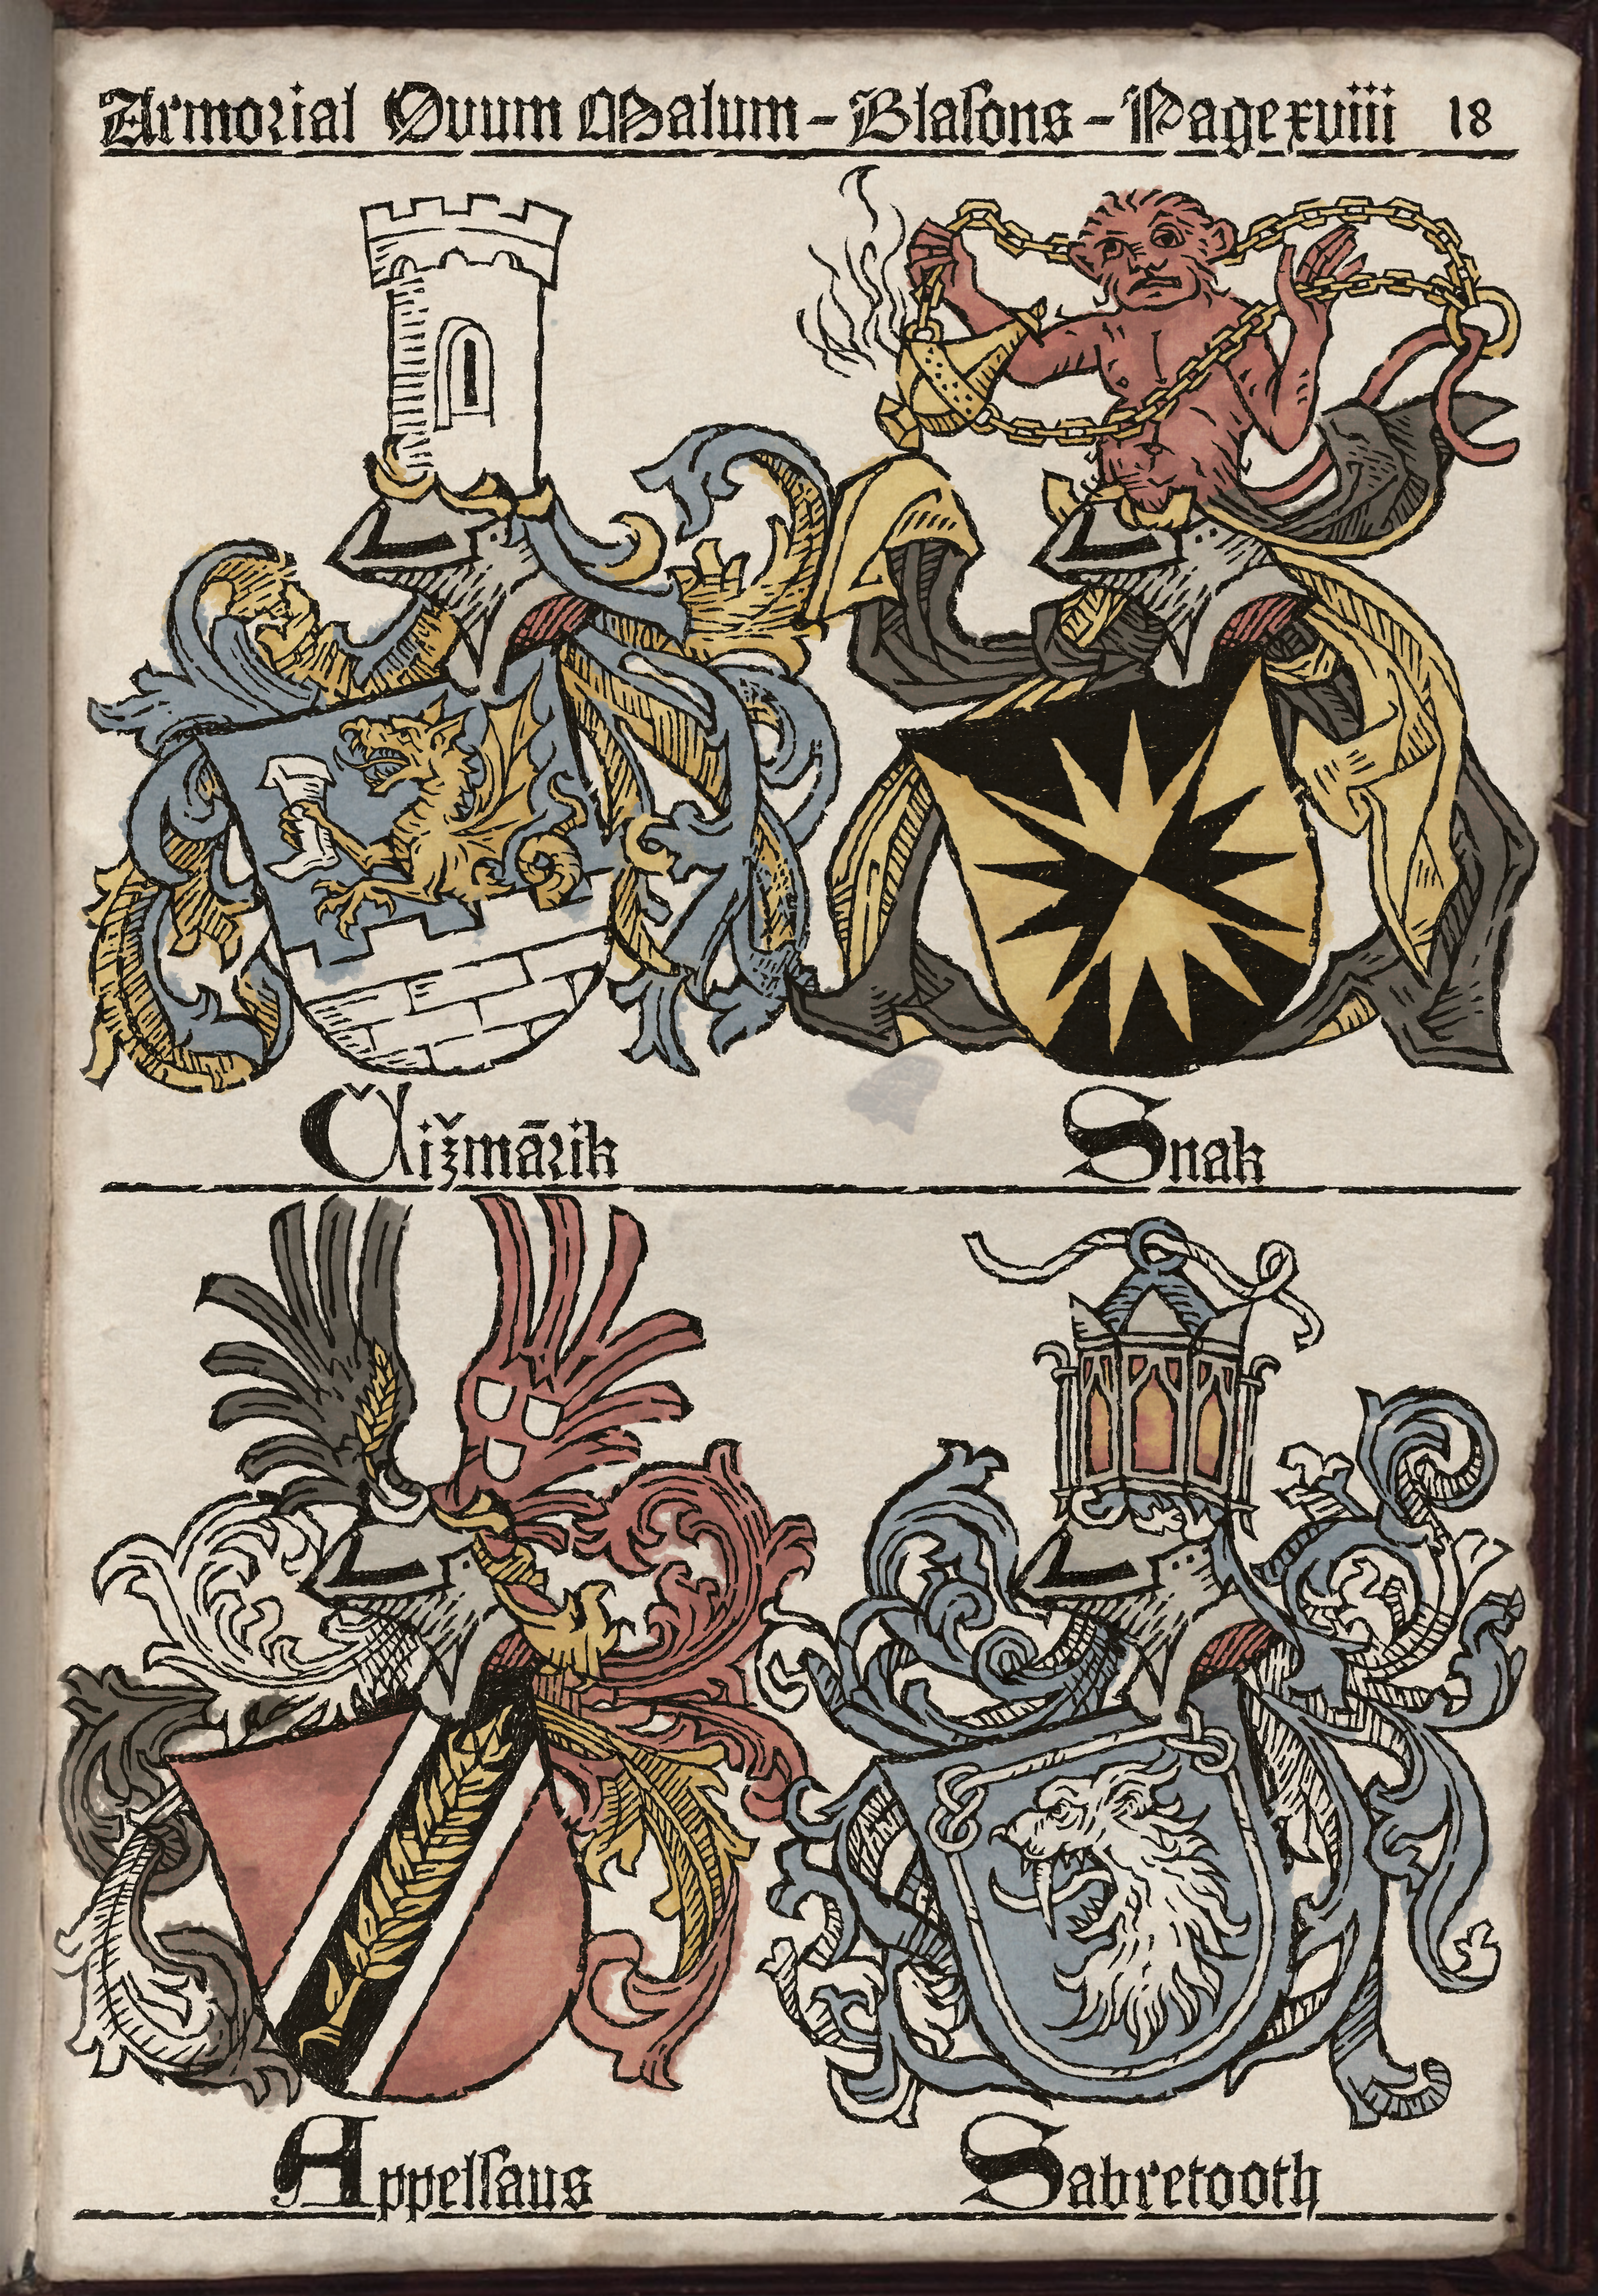 Armorial Ovum Malum - Blaſons - Page xviii 18
Čižmārik Snak
Appelſaus Sabretooth